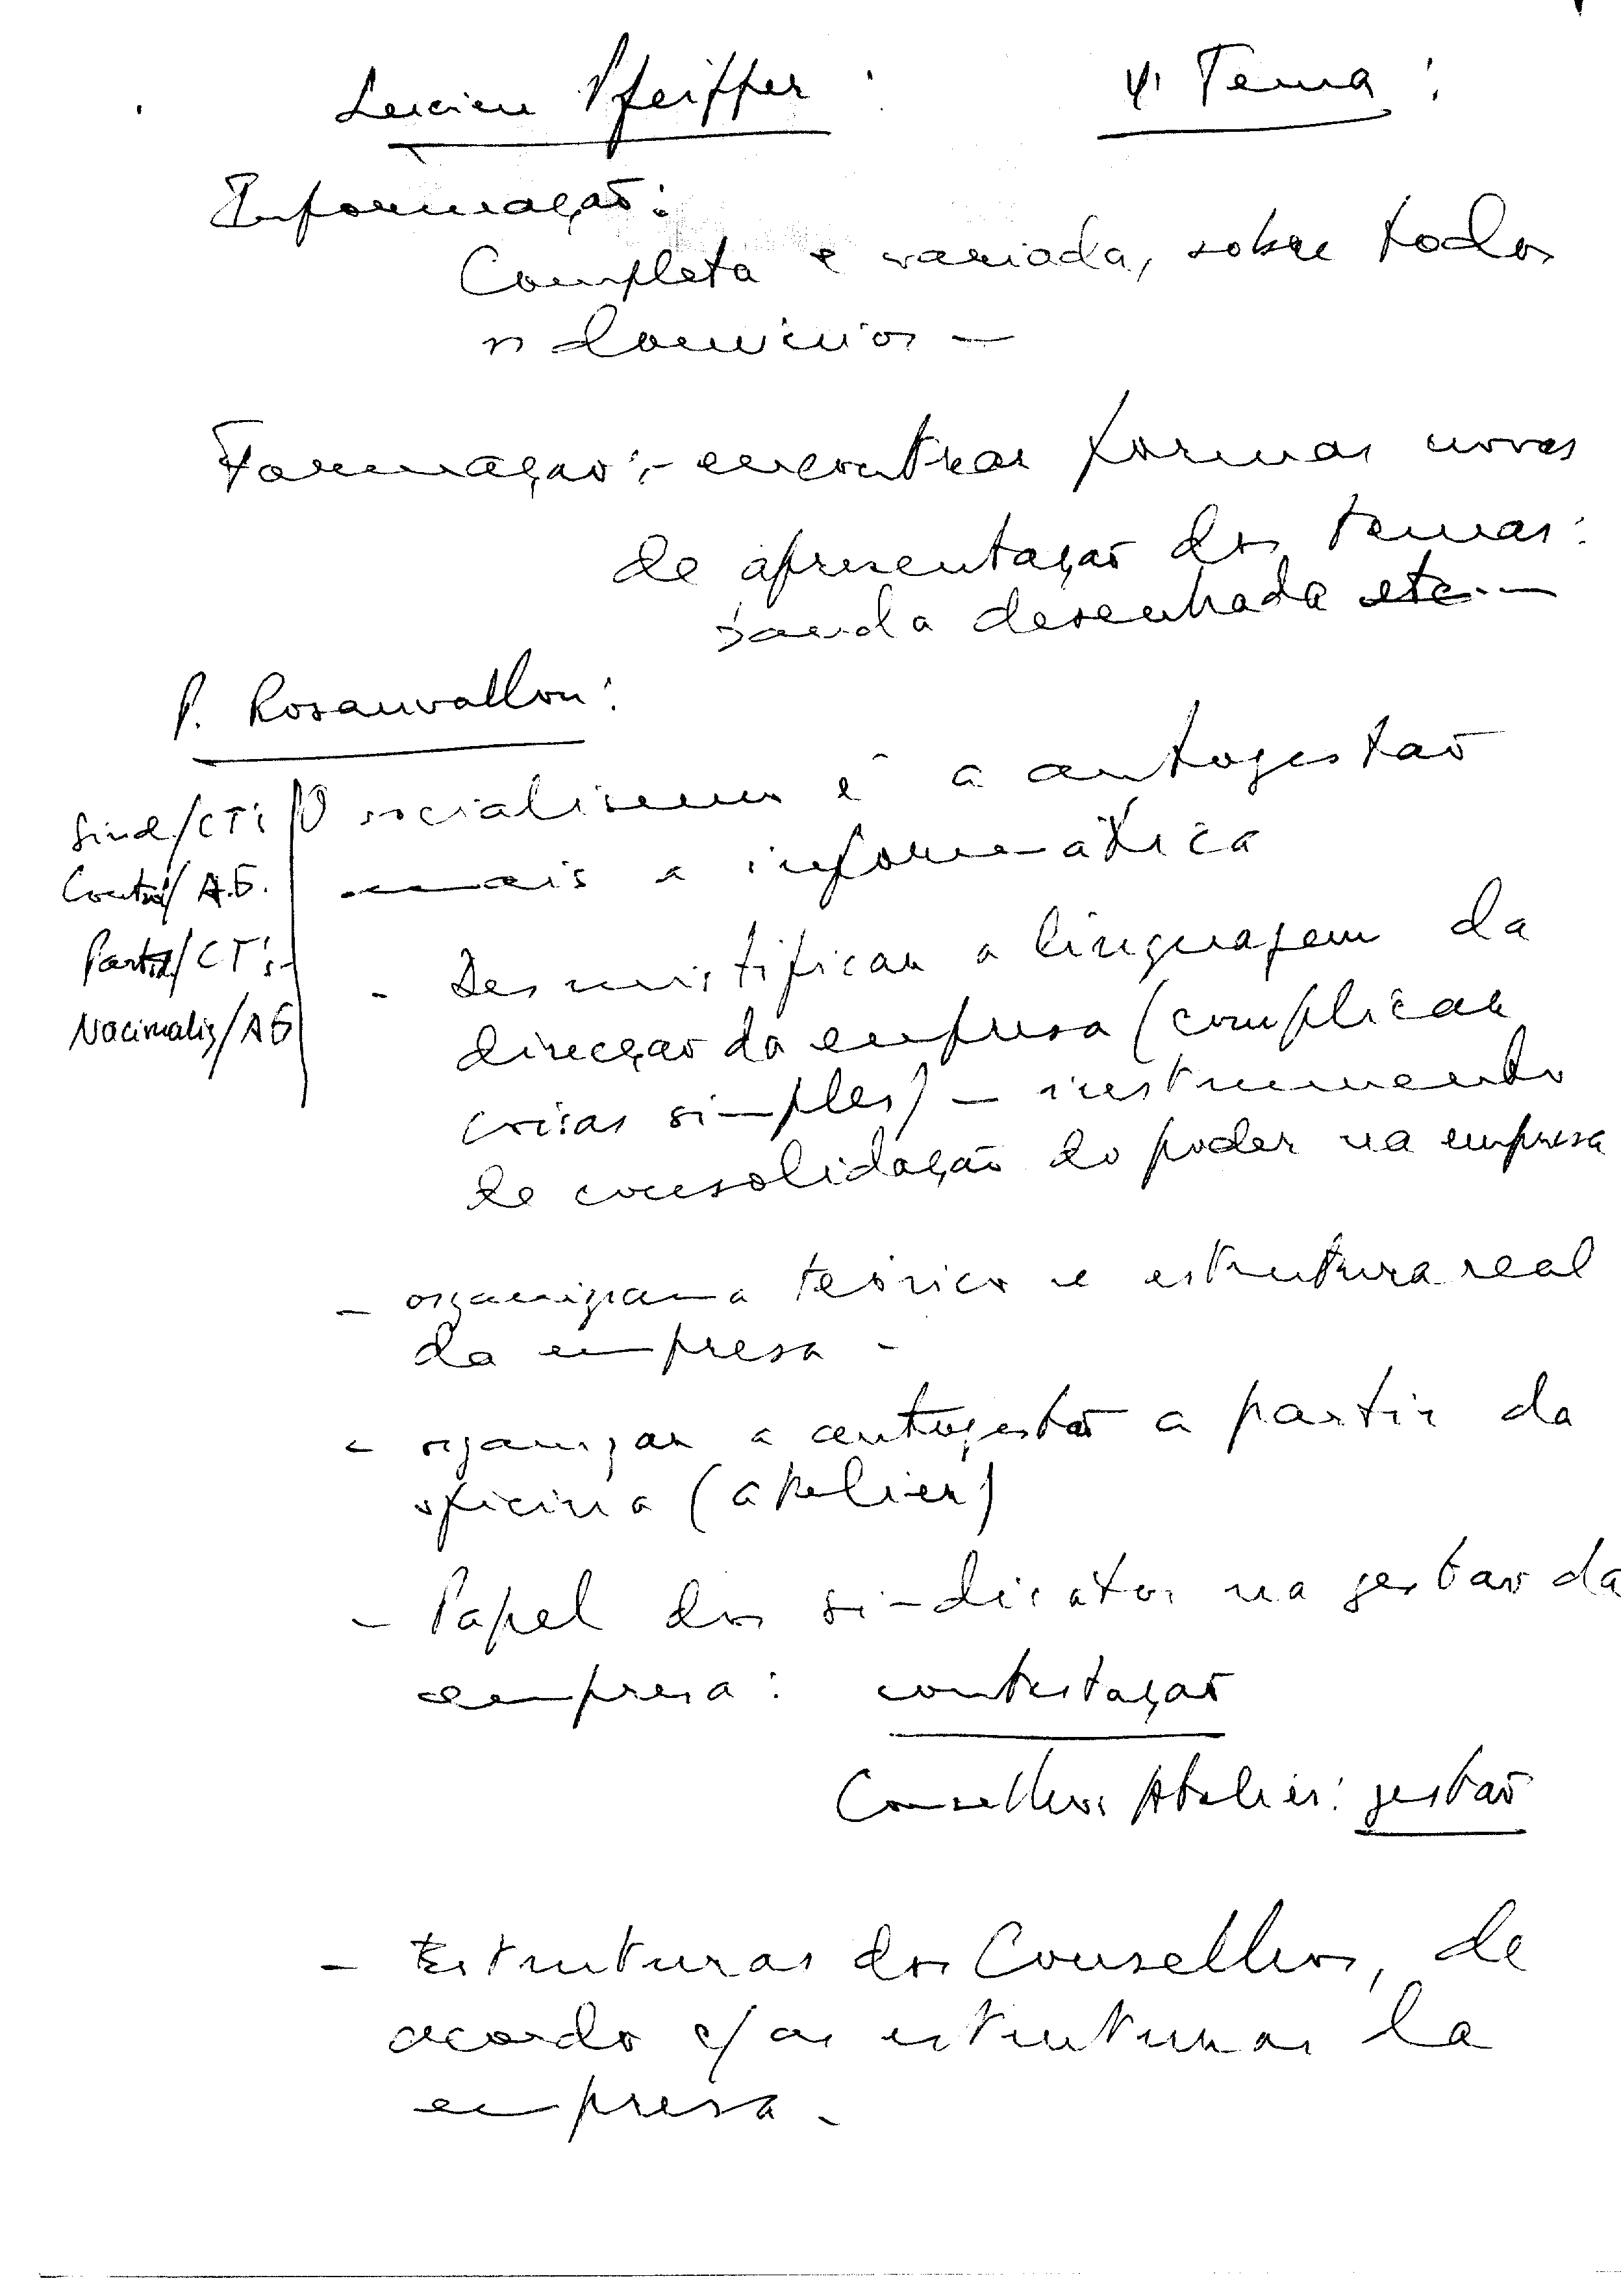 Lucien Pfeiffer : 4º Tema :
Informação:
Completa e variada, sobre todos
os domínios —
Formação :- encontrar formas novas
de apresentação dos temas:
banda desenhada etc.—
P. Rosanvallon:
O socialismo é a autogestão
mais a informática
Sind/CTs
Contr/A.G.
Part/CTs-
Nacionaliz/AG
- Desmistificar a linguagem da
direcção da empresa (complicar
coisas simples) — instrumento
de consolidação do poder na empresa
- organigrama teórico e estrutura real
da empresa -
- organizar a autogestão a partir da
oficina (atelier)
- Papel dos sindicatos na gestão da
empresa: contestação
Conselhos Atelier: gestão
- Estruturas dos Conselhos, de
acordo c/ as estruturas da
empresa -